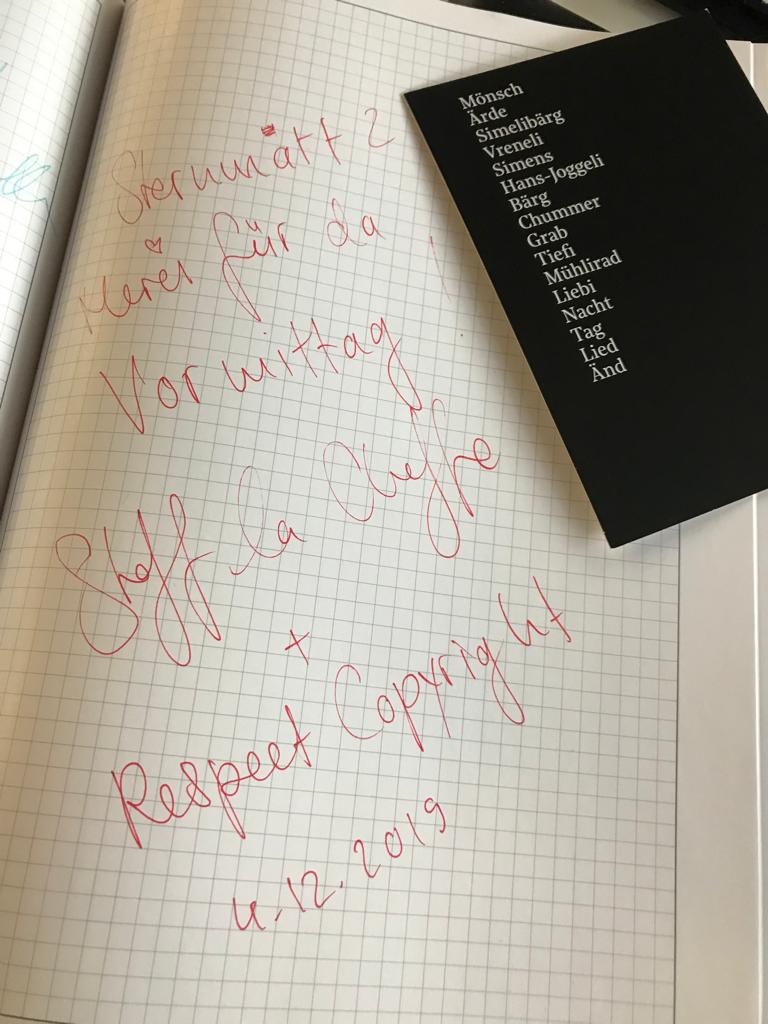 Sternmatt 2
Merci für da
Vormittag !
Steff la Cheffe
+
Respect Copyright
4.12.2019
Mönsch
Ärde
Simelibärg
Vreneli
Simens
Hans-Joggeli
Bärg
Chummer
Grab
Tiefi
Mühlirad
Liebi
Nacht
Tag
Lied
Änd